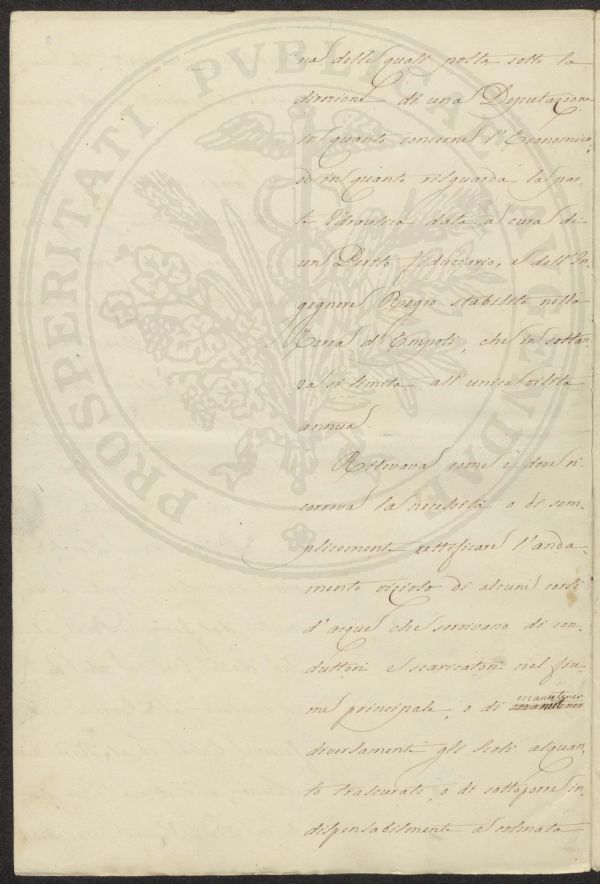 PROSPERITATI PVBLICAE AVGENDAE
na delle quali posta sotto la
direzione di una Deputazione
in quanto concerne l'Economico,
ed in quanto risguarda la par-
te Idraulica data a cura di
un Perito fiduciario, e dell'In-
gegnere Regio stabilito nella
Terra d'Empoli, che in sostan-
za si limita all'unica visita
annua.
Rilevava come e dove ri-
correva la necessità o di sem-
plicemente rettificare l'anda-
mento vizioso di alcuni corsi
d'acque che servivano di con-
duttori e scaricatori nel fiu-
me principale, o di mantener
diversamente gli scoli alquan-
to trascurati, o di sottoporre in-
dispensabilmente a colmata